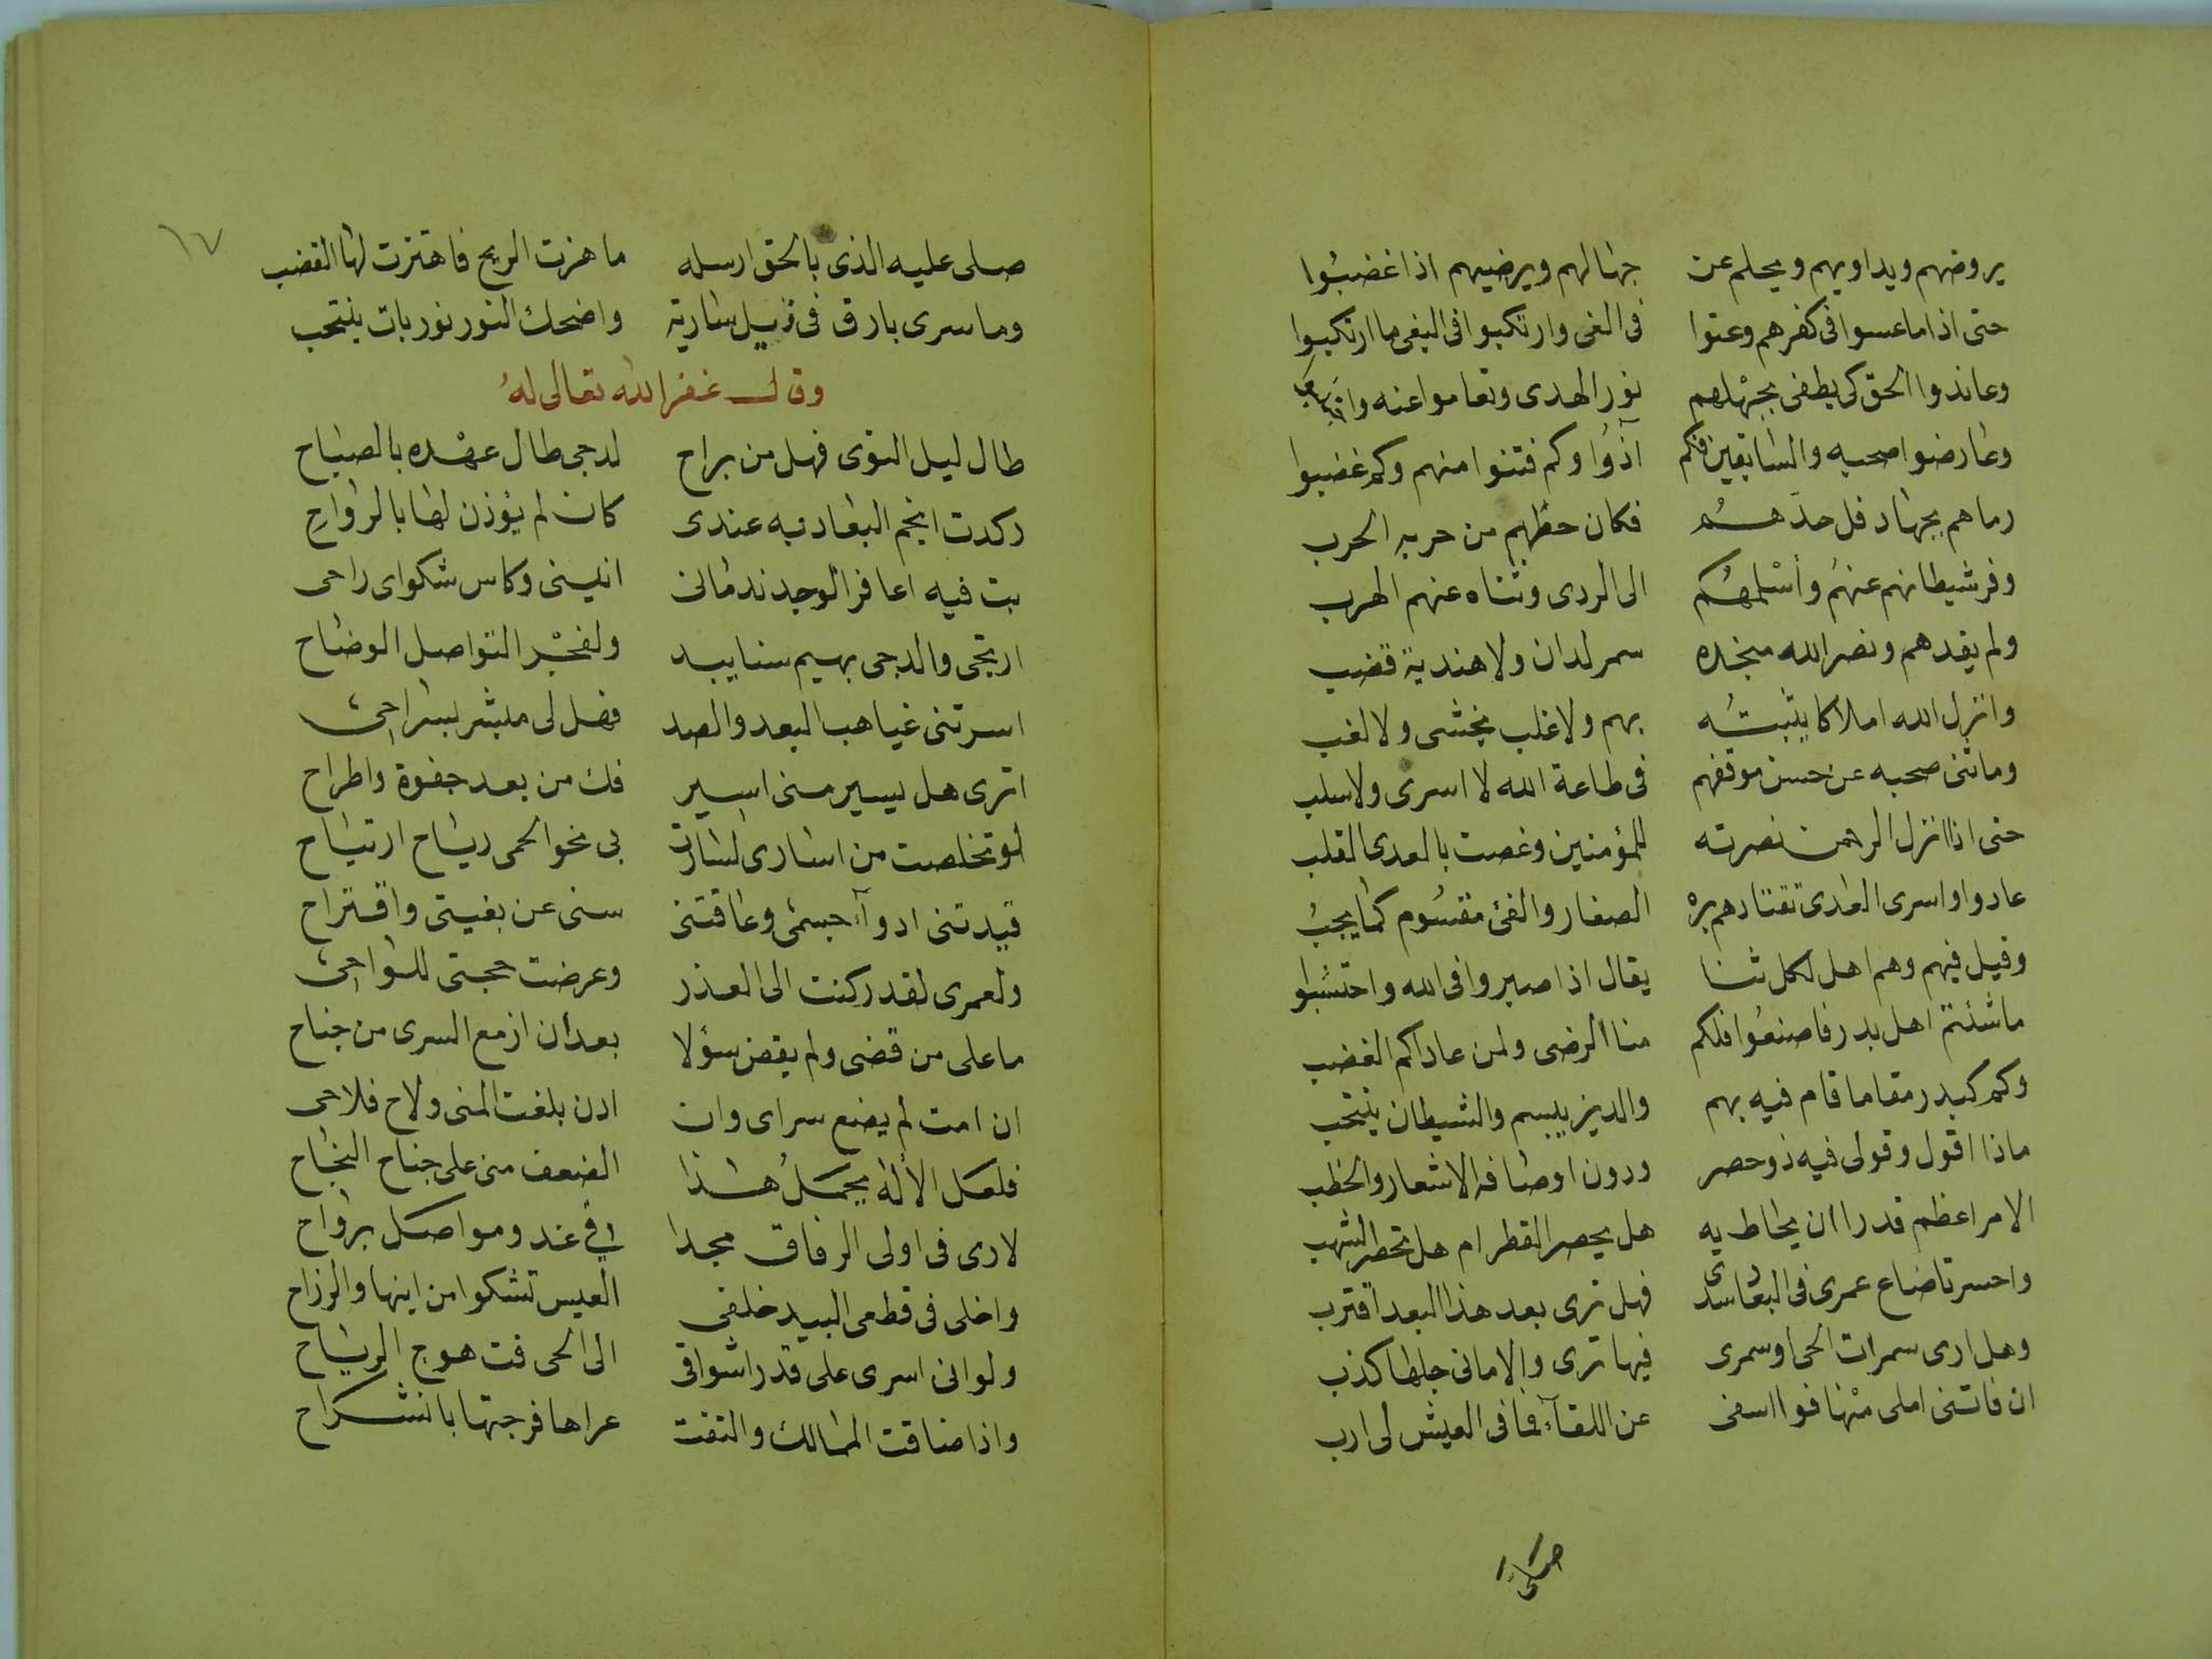 يروضهم ويداويهم ويحلم عن جهالهم ويرضيهم اذا غضبوا
حتى اذا ما عسوا فى كفرهم وعتوا فى الغى وارتكبوا فى البغى ما ارتكبوا
وعاندوا الحق كى يطفى بجهلهم نور الهدى وتعاموا عنه
وعارضوا صحبه والسابقين فكم آذوا وكم فتنوا منهم وكم غضبوا
رماهم بجهاد فل حدهم فكان حظهم من حربه الحرب
وفر شيطانهم عنهم وأسلمهم الى الردى وثناه عنهم الهرب
ولم يفدهم ونصر الله منجده سمر لدان ولا هندية قضب
وانزل الله املاكا يثبته بهم ولا غلب يخشى ولا لغب
وما ثنى صحبه عن حسن موقفهم فى طاعة الله لا اسرى ولا سلب
حتى اذا انزل الرحمن نصرته للمؤمنين وغصت بالعدى القلب
عادوا واسرى العدى تقتادهم بره الصغار والفئ مقسوم كما يجب
وقيل فيهم وهم اهل لكل ثنا يقال اذا صبروا فى الله واحتسبوا
ما شئتم اهل بدر فاصنعوا فلكم منا الرضى ولمن عاداكم الغضب
وكم كبدر مقاما قام فيه بهم والدين يبسم والشيطان ينتحب
ماذا اقول وقولى فيه ذو حصر ودون اوصافه الاشعار والخطب
الامر اعظم قدرا ان يحاط به هل يحصر القطر ام هل تحصر الشهب
واحسرتا ضاع عمرى فى البعاد سدى فهل ترى بعد هذا البعد اقترب
وهل ارى سمرات الحى او سمرى فيها ترى والامانى جلها كذب
ان فاتنى املى منها فوا اسفى عن اللقاء فما فى العيش لى ارب
صلى
١٧
صلى عليه الذى بالحق ارسله ما هزت الريح فاهتزت لها القضب
وما سرى بارق فى ذيل سارية واضحك النور نور بات ينتحب
وقال غفر الله تعالى له
طال ليل النوى فهل من براح لدجى طال عهده بالصباح
ركدت انجم البعاد به عندى كان لم يؤذن لها بالرواح
بت فيه اعاقر الوجد ندمانى انينى وكاس شكواى راحى
ارتجى والدجى بهيم سنا بيد ولفجر التواصل الوضاح
اسرتنى غياهب البعد والصد فهل لى مبشر بسراحى
اترى هل يسير منى اسير فك من بعد جفوة واطراح
لو تخلصت من اسارى لسارت بى نحو الحمى رياح ارتياح
قيدتنى ادواء جسمى وعاقتنى سنى عن بغيتى واقتراح
ولعمرى لقد ركنت الى العذر وعرضت حجتى للواحى
ما على من قضى ولم يقض سؤلا بعد ان ازمع السرى من جناح
ان امت لم يضع سراى وان ادن بلغت المنى ولاح فلاحى
فلعل الاله يحمل هذا الضعف منى على جناح النجاح
لارى فى اولى الرفاق مجدا فى غدو مواصل برواح
واخلى فى قطعى البيد خلفى العيس تشكو امن اينها والرزاح
ولو انى اسرى على قدر اشواقى الى الحى فت هوج الرياح
واذا ضاقت المسالك والتفت عراها فرجتها بانشراح